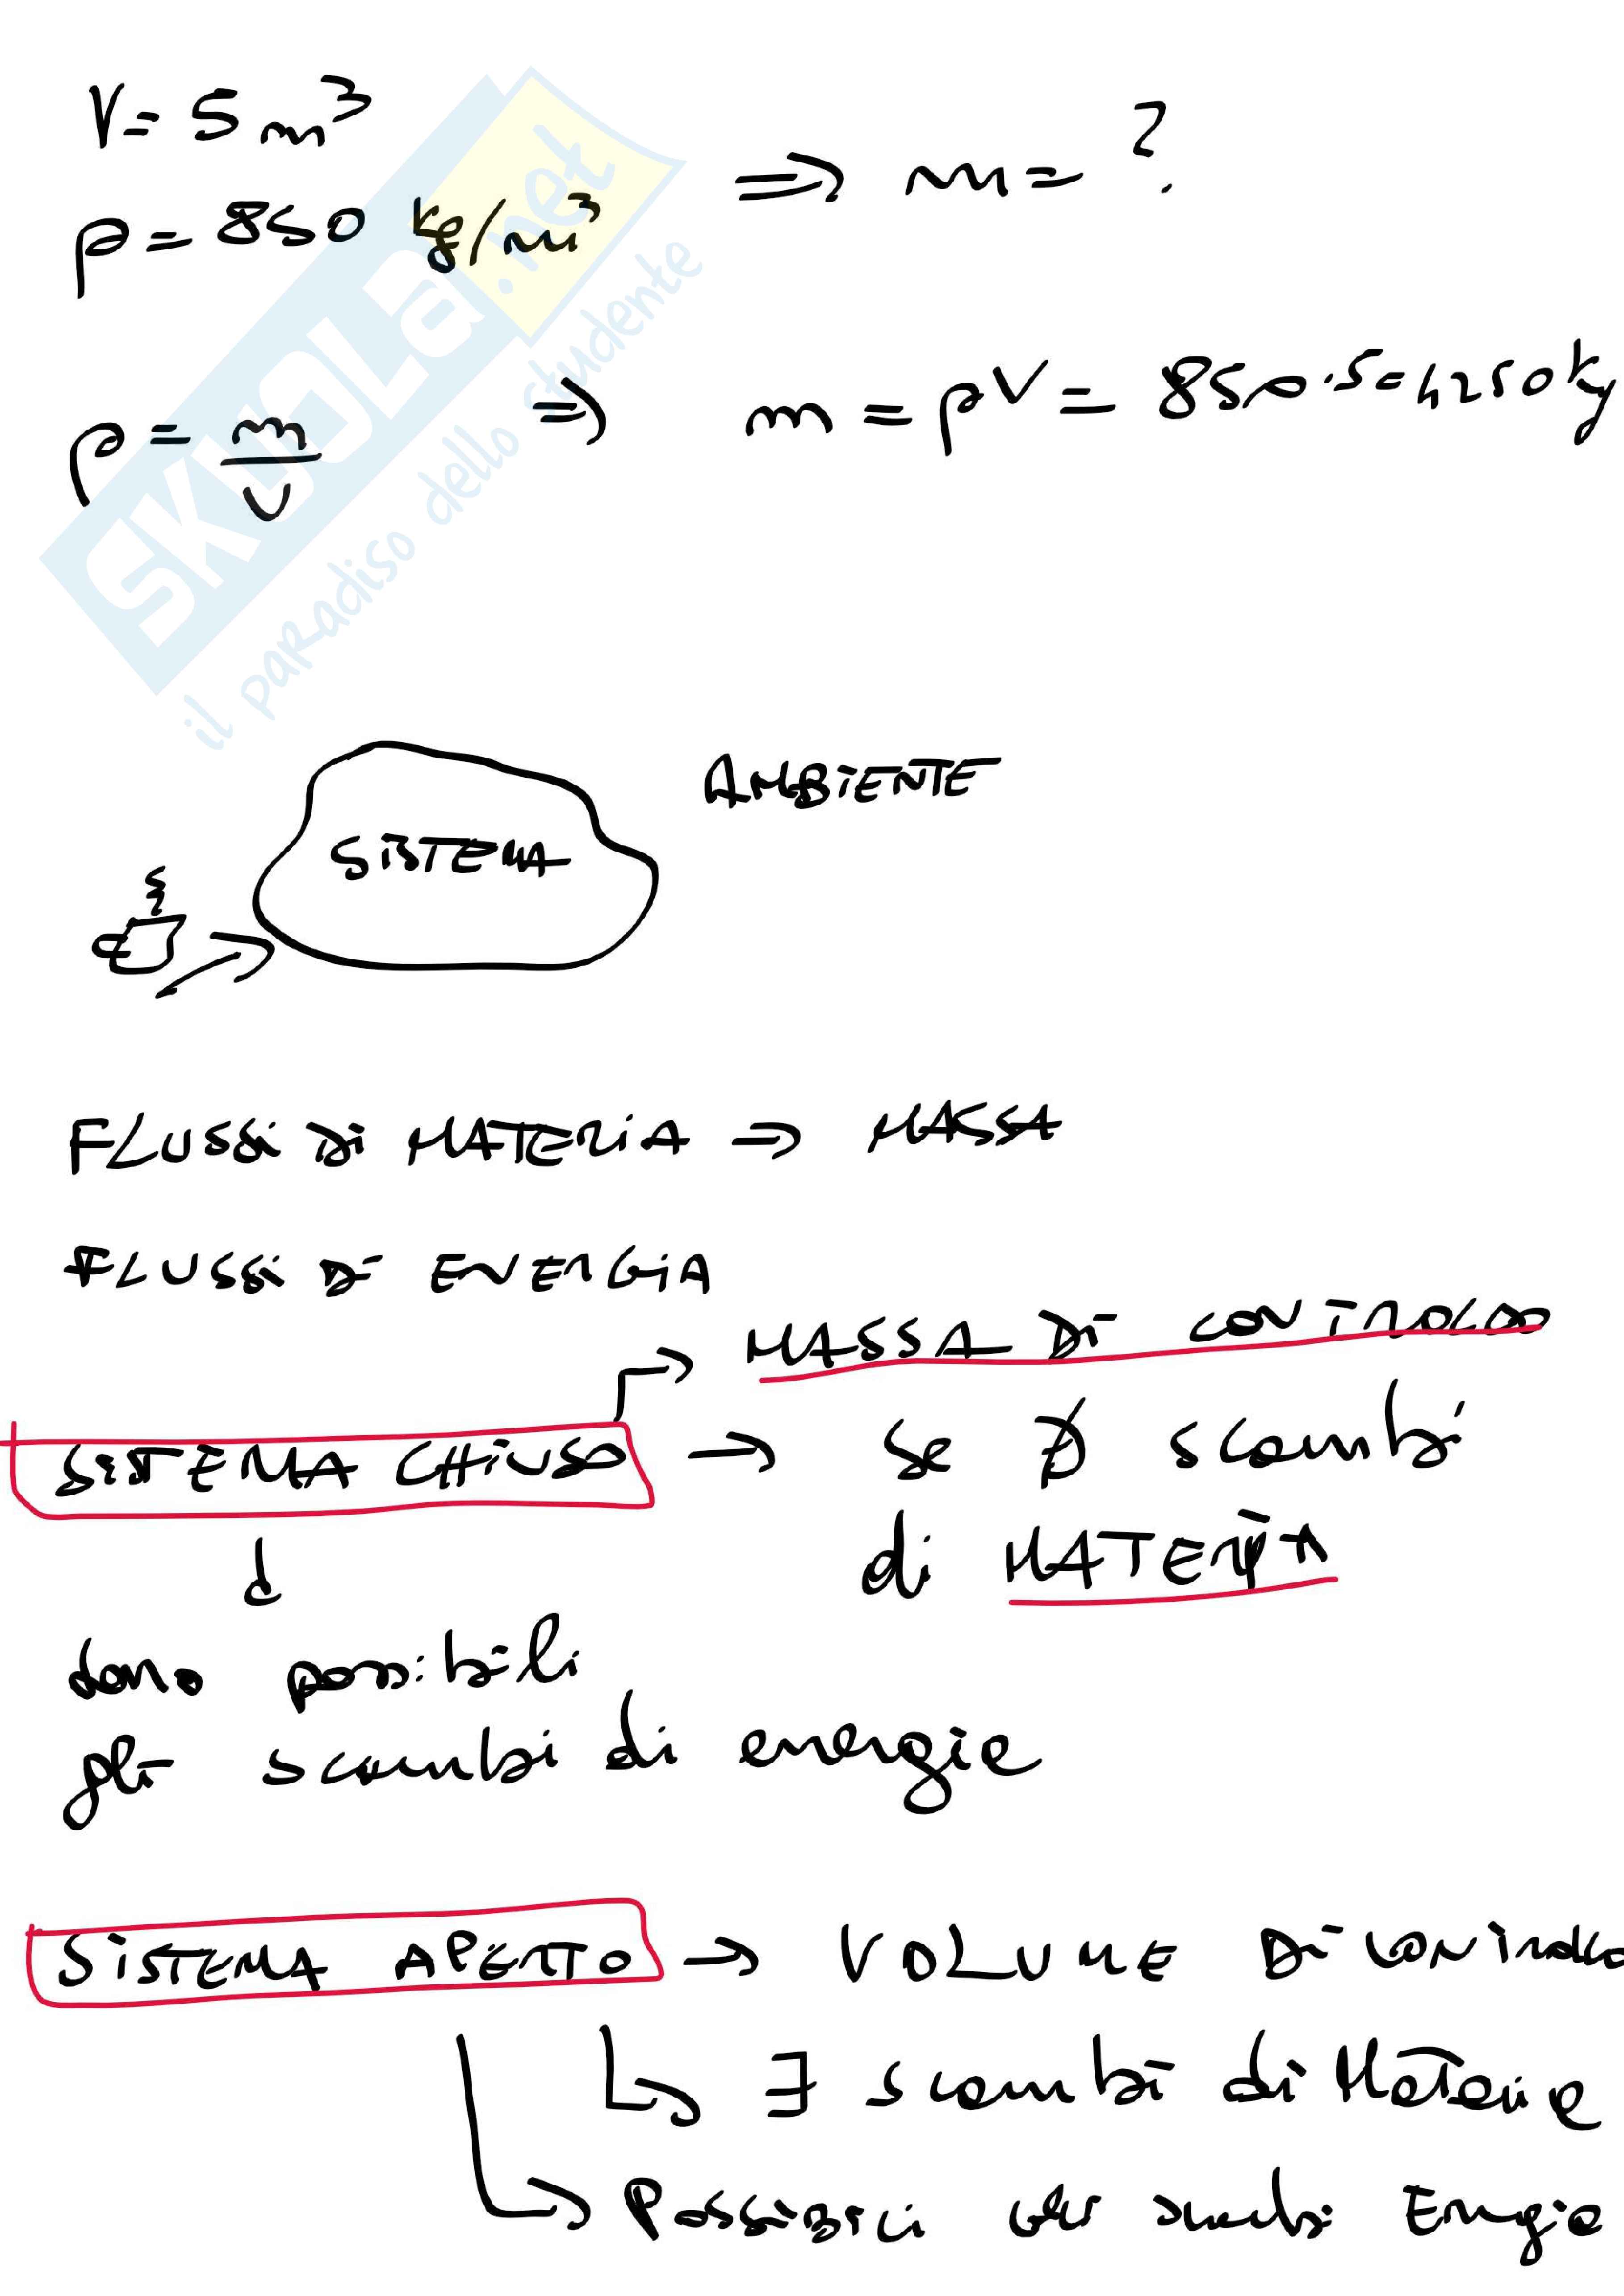 V = 5 m³
ρ = 850 kg/m³ ⇒ m = ?
ρ = m/V ⇒ m = ρV = 850 · 5 = 4250 kg
SKUOLA.net
il paradiso dello studente
AMBIENTE
SISTEMA
FLUSSI DI MATERIA ⇒ MASSA
FLUSSI DI ENERGIA
MASSA DI CONTROLLO
SISTEMA CHIUSO → se ∄ scambi
di MATERIA
sono possibili
gli scambi di energie
SISTEMA APERTO → VOLUME DI CONTROLLO
∃ scambi di Materia
POSSIBILI scambi Energia